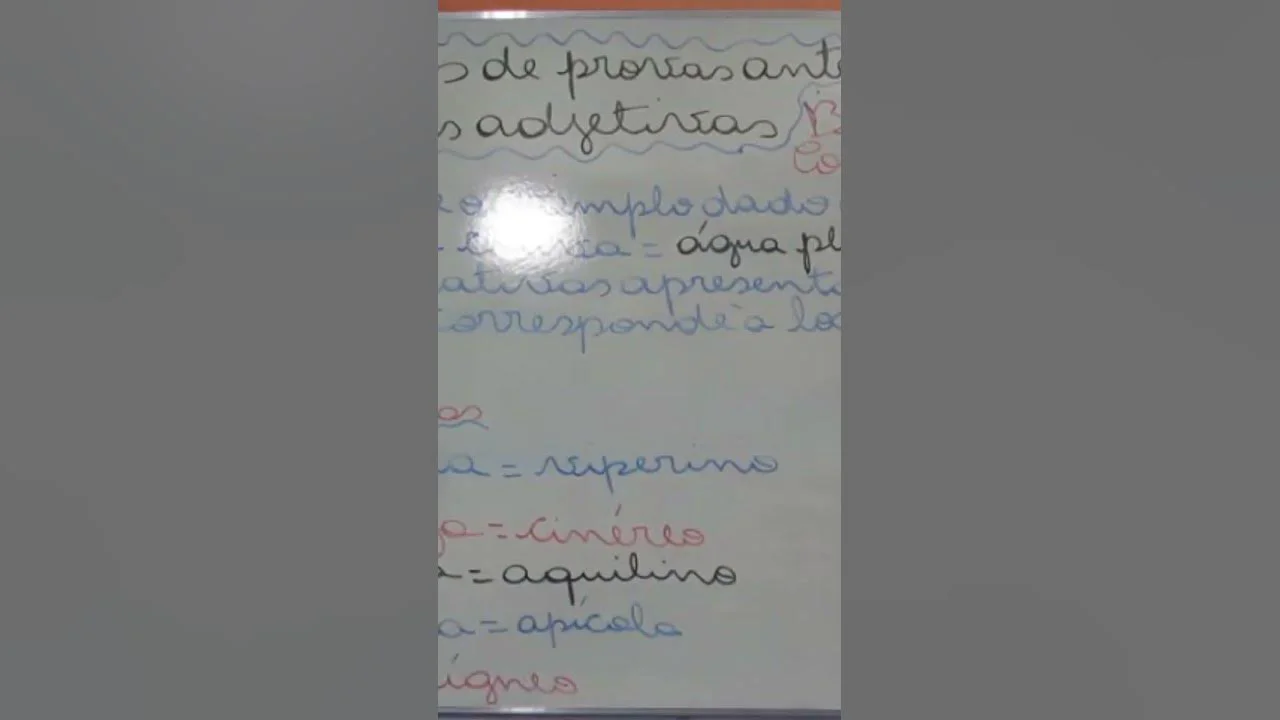 s de provas ant
s adjetivas B
Co
emplo dado
= água pl
ativas apresent
corresponde à lo
os
a = viperino
za = cinéreo
= aquilino
a = apícola
ígneo